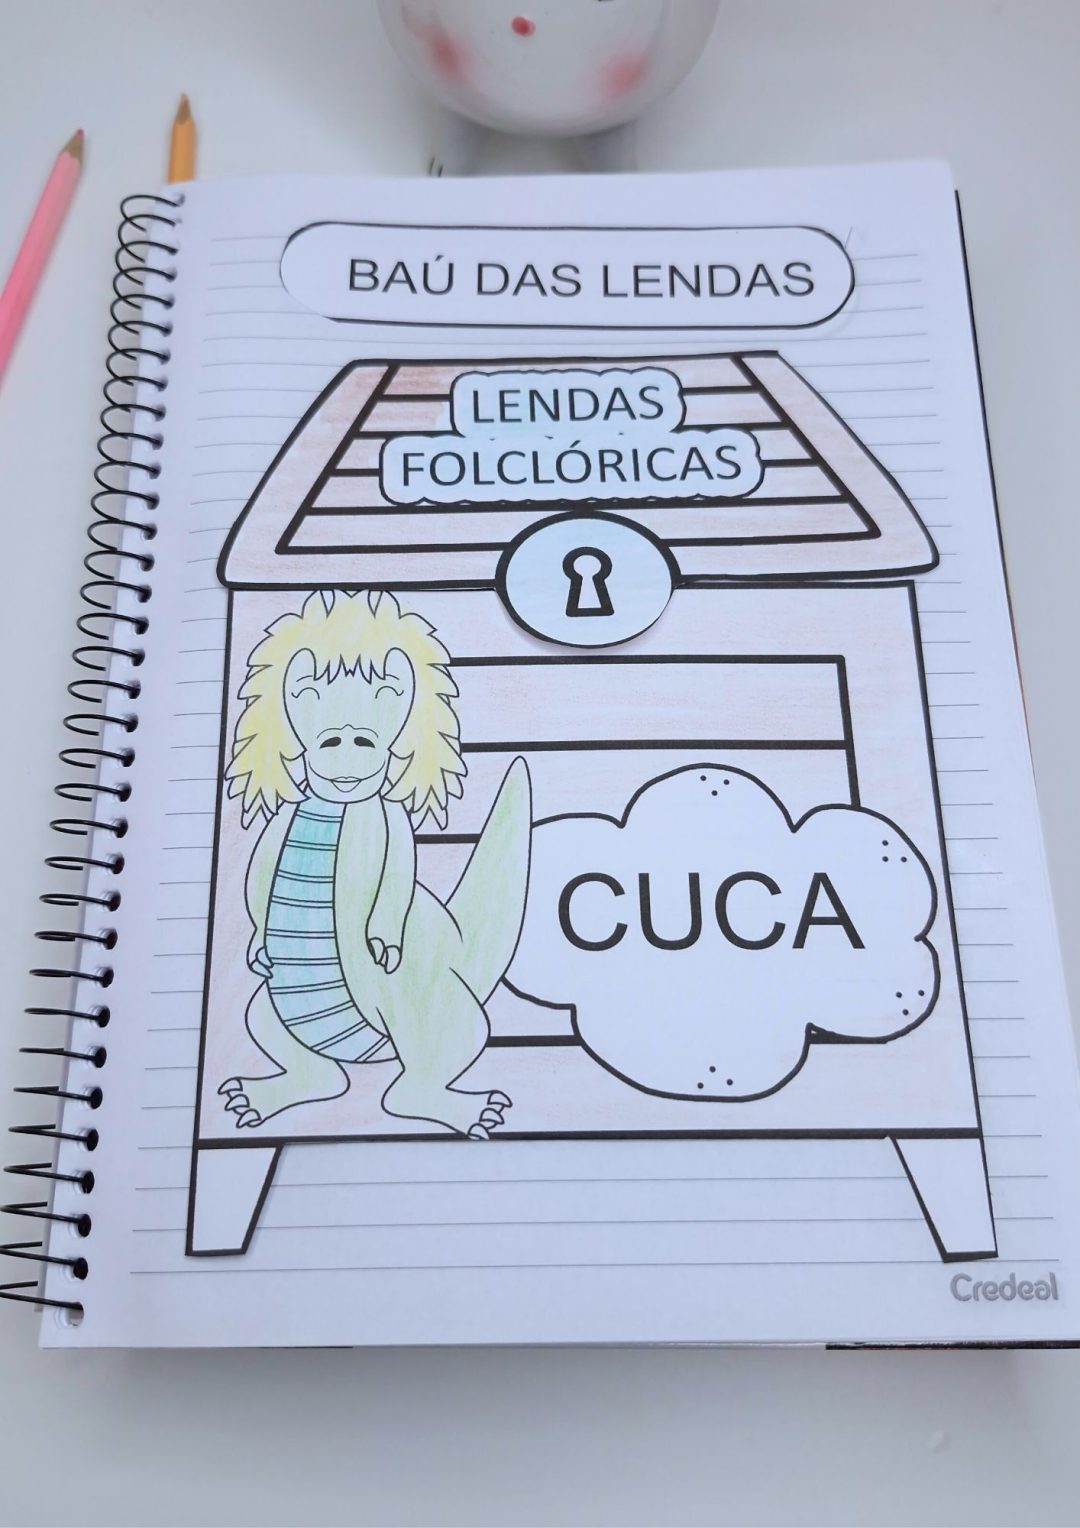 BAÚ DAS LENDAS
LENDAS
FOLCLÓRICAS
CUCA
Credeal